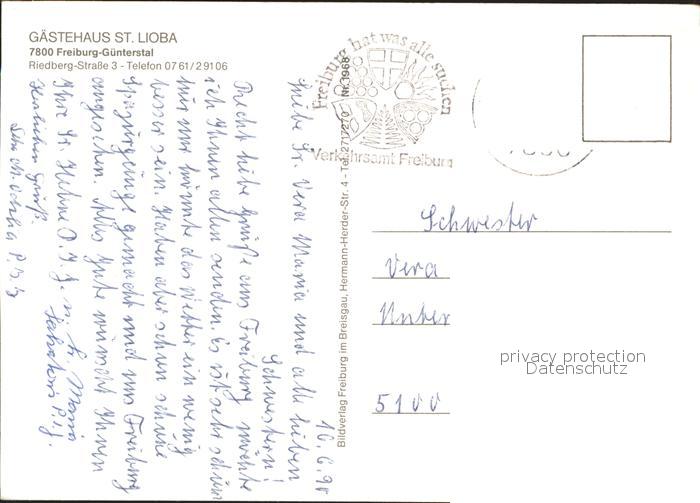 GÄSTEHAUS ST. LIOBA
7800 Freiburg-Günterstal
Riedberg-Straße 3 - Telefon 07 61 / 2 91 06
Freiburg hat was alle suchen
Verkehrsamt Freiburg
Bildverlag Freiburg im Breisgau, Hermann-Herder-Str. 4 - Tel. 27 17 270 Nr. 1968
16. 6. 90
Liebe Sr. Vera Maria und alle lieben
Schwestern!
Recht liebe Grüße aus Freiburg möchte
ich Ihnen allen senden. Es ist sehr schön
hier nur könnte das Wetter ein wenig
besser sein. Haben aber schon schöne
Spaziergänge gemacht und uns Freiburg
angesehen. Alles Gute wünscht Ihnen
Ihre Sr. Helene
Herzlichen Gruß
Schwester
Vera
Unter
5100
privacy protection
Datenschutz